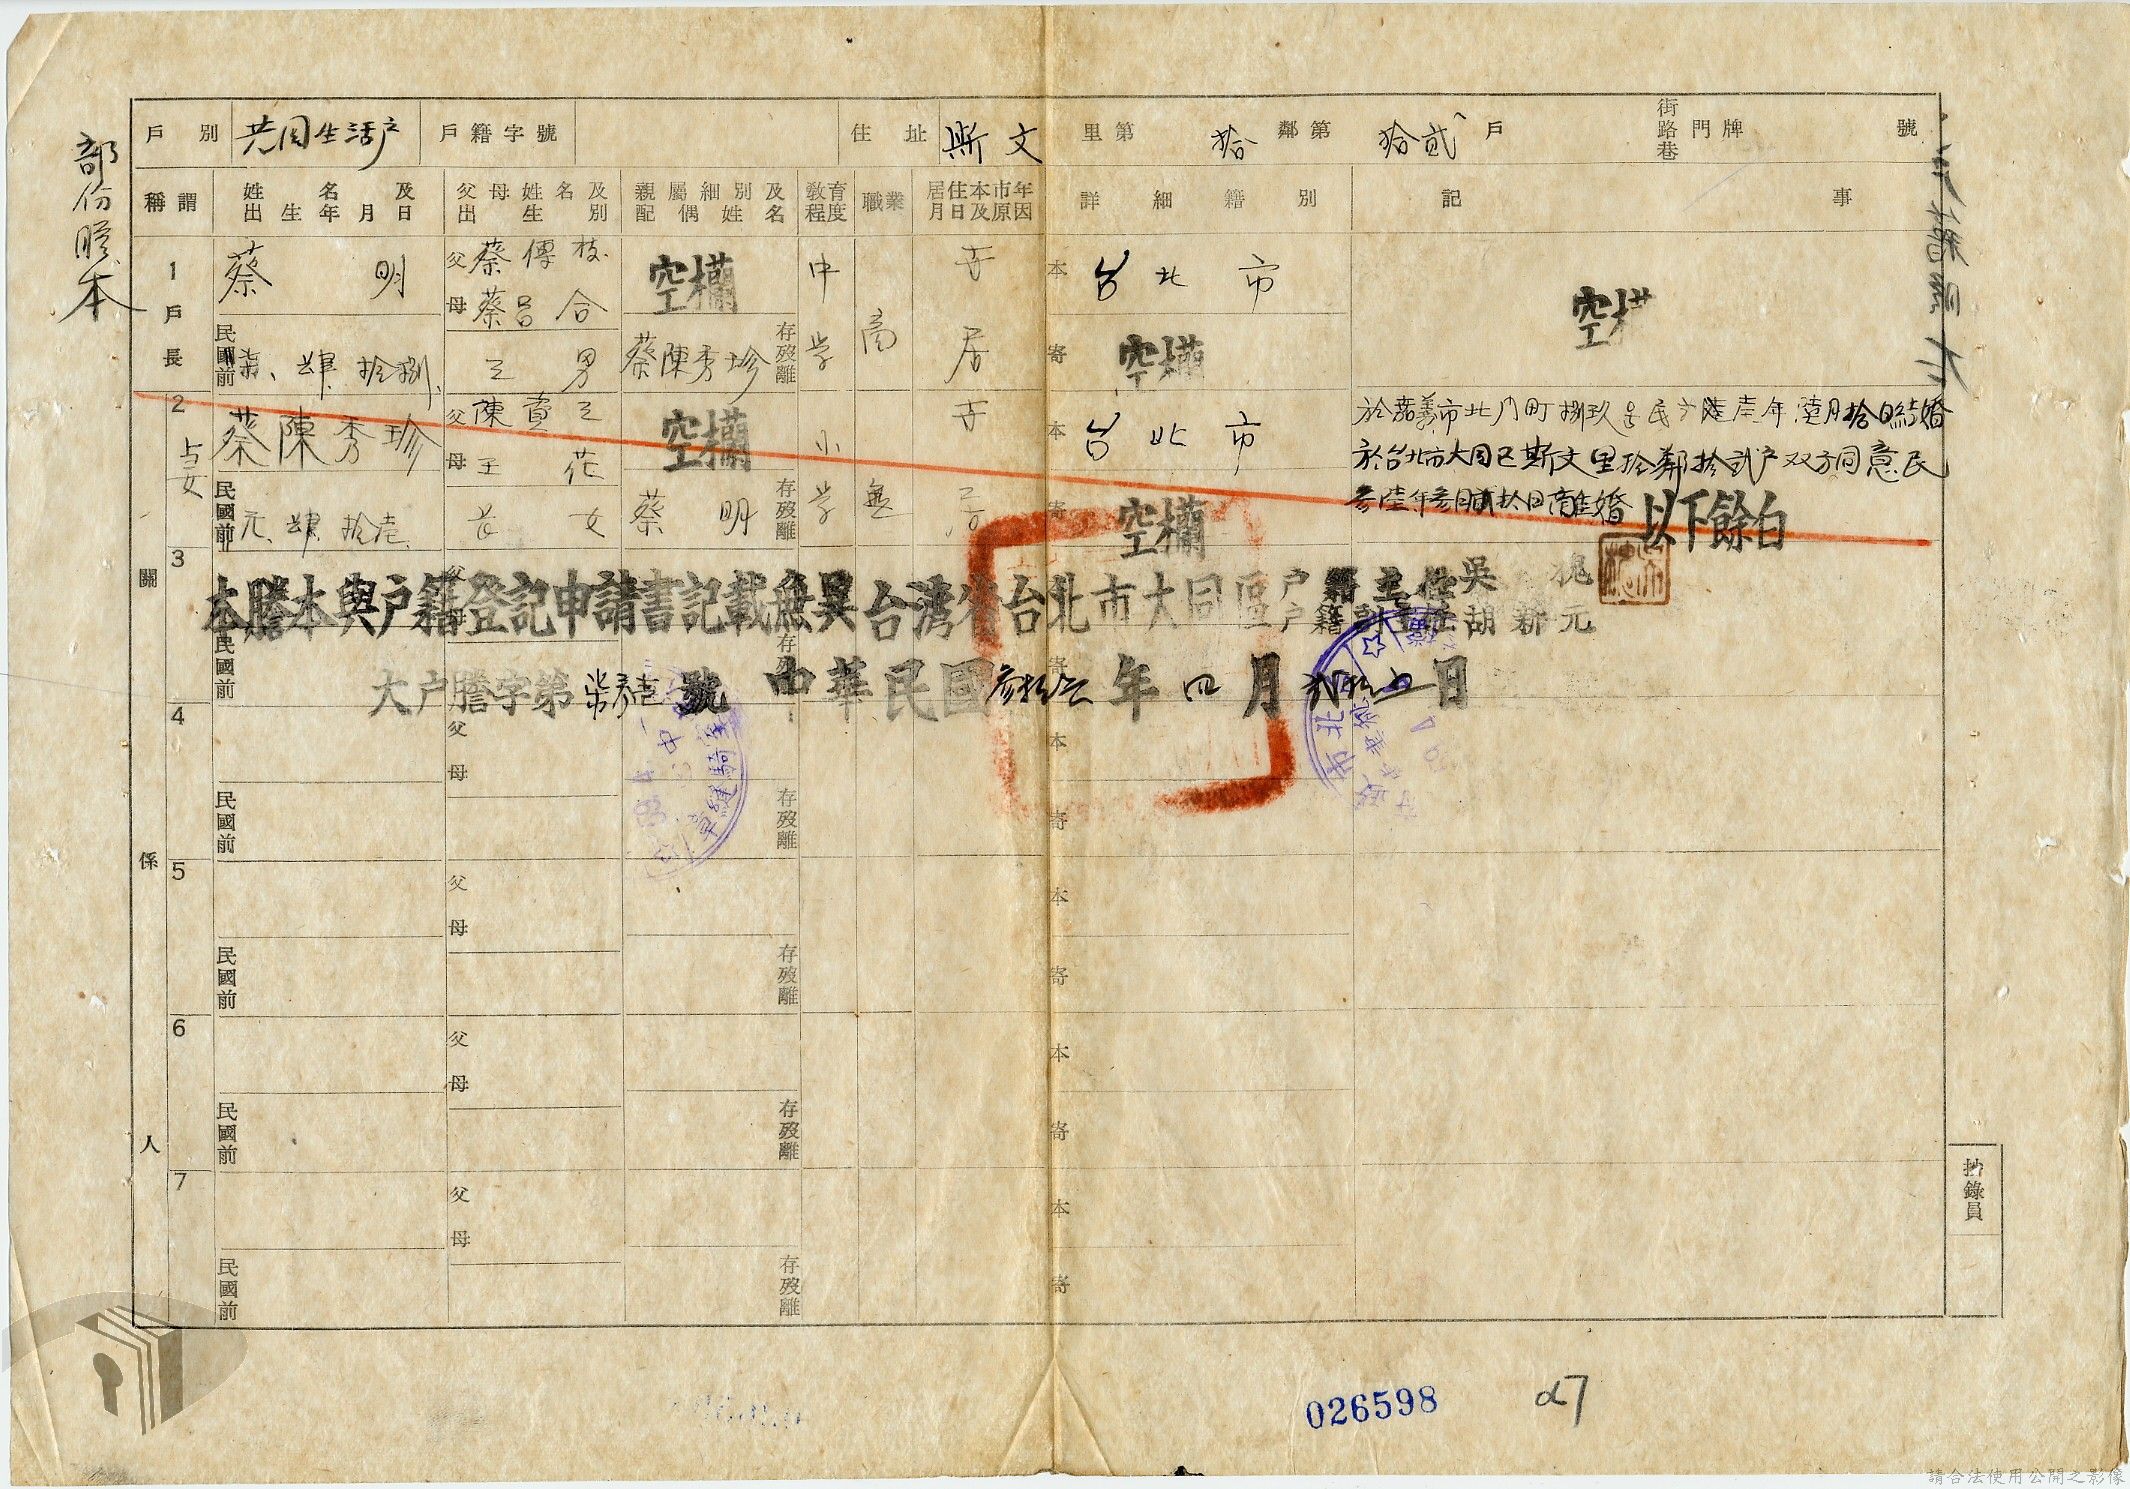 部份謄本
戶別 共同生活户 戶籍字號 住址 斯文 里第 拾 鄰第 拾貳 戶 街路巷 門牌 號
稱謂 姓名及出生年月日 父母姓名及出生別 親屬細別及配偶姓名 教育程度 職業 居住本市年月日及原因 詳細籍別 記事
1 戶長 蔡明 父 蔡傳枝 空欄 中学 商 寄居 本 台北市 空欄
母 蔡呂合
民國前 肆、拾捌 三男 蔡陳秀珍 存歿離 寄 空欄
2 蔡陳秀珍 父 陳 空欄 小学 無 本 台北市 於嘉義市北門町捌玖 民 年 月拾日結婚
母 王花 於台北市大同区斯文里拾鄰拾貳户双方同意民
民國前 元、肆、拾 女 蔡明 存歿離 寄 空欄 年參月貳拾日離婚 以下餘白
3 父 母 本
本謄本與户籍登記申請書記載無異台湾省台北市大同區户籍主任吳槐
户籍副主任胡新元
民國前 存歿離 寄
大户謄字第 號 中華民國參拾 年四月貳拾 日
4 父 母 本
民國前 存歿離 寄
5 父 母 本
民國前 存歿離 寄
6 父 母 本
民國前 存歿離 寄
7 父 母 本
民國前 存歿離 寄
關係人
抄錄員
026598
請合法使用公開之影像